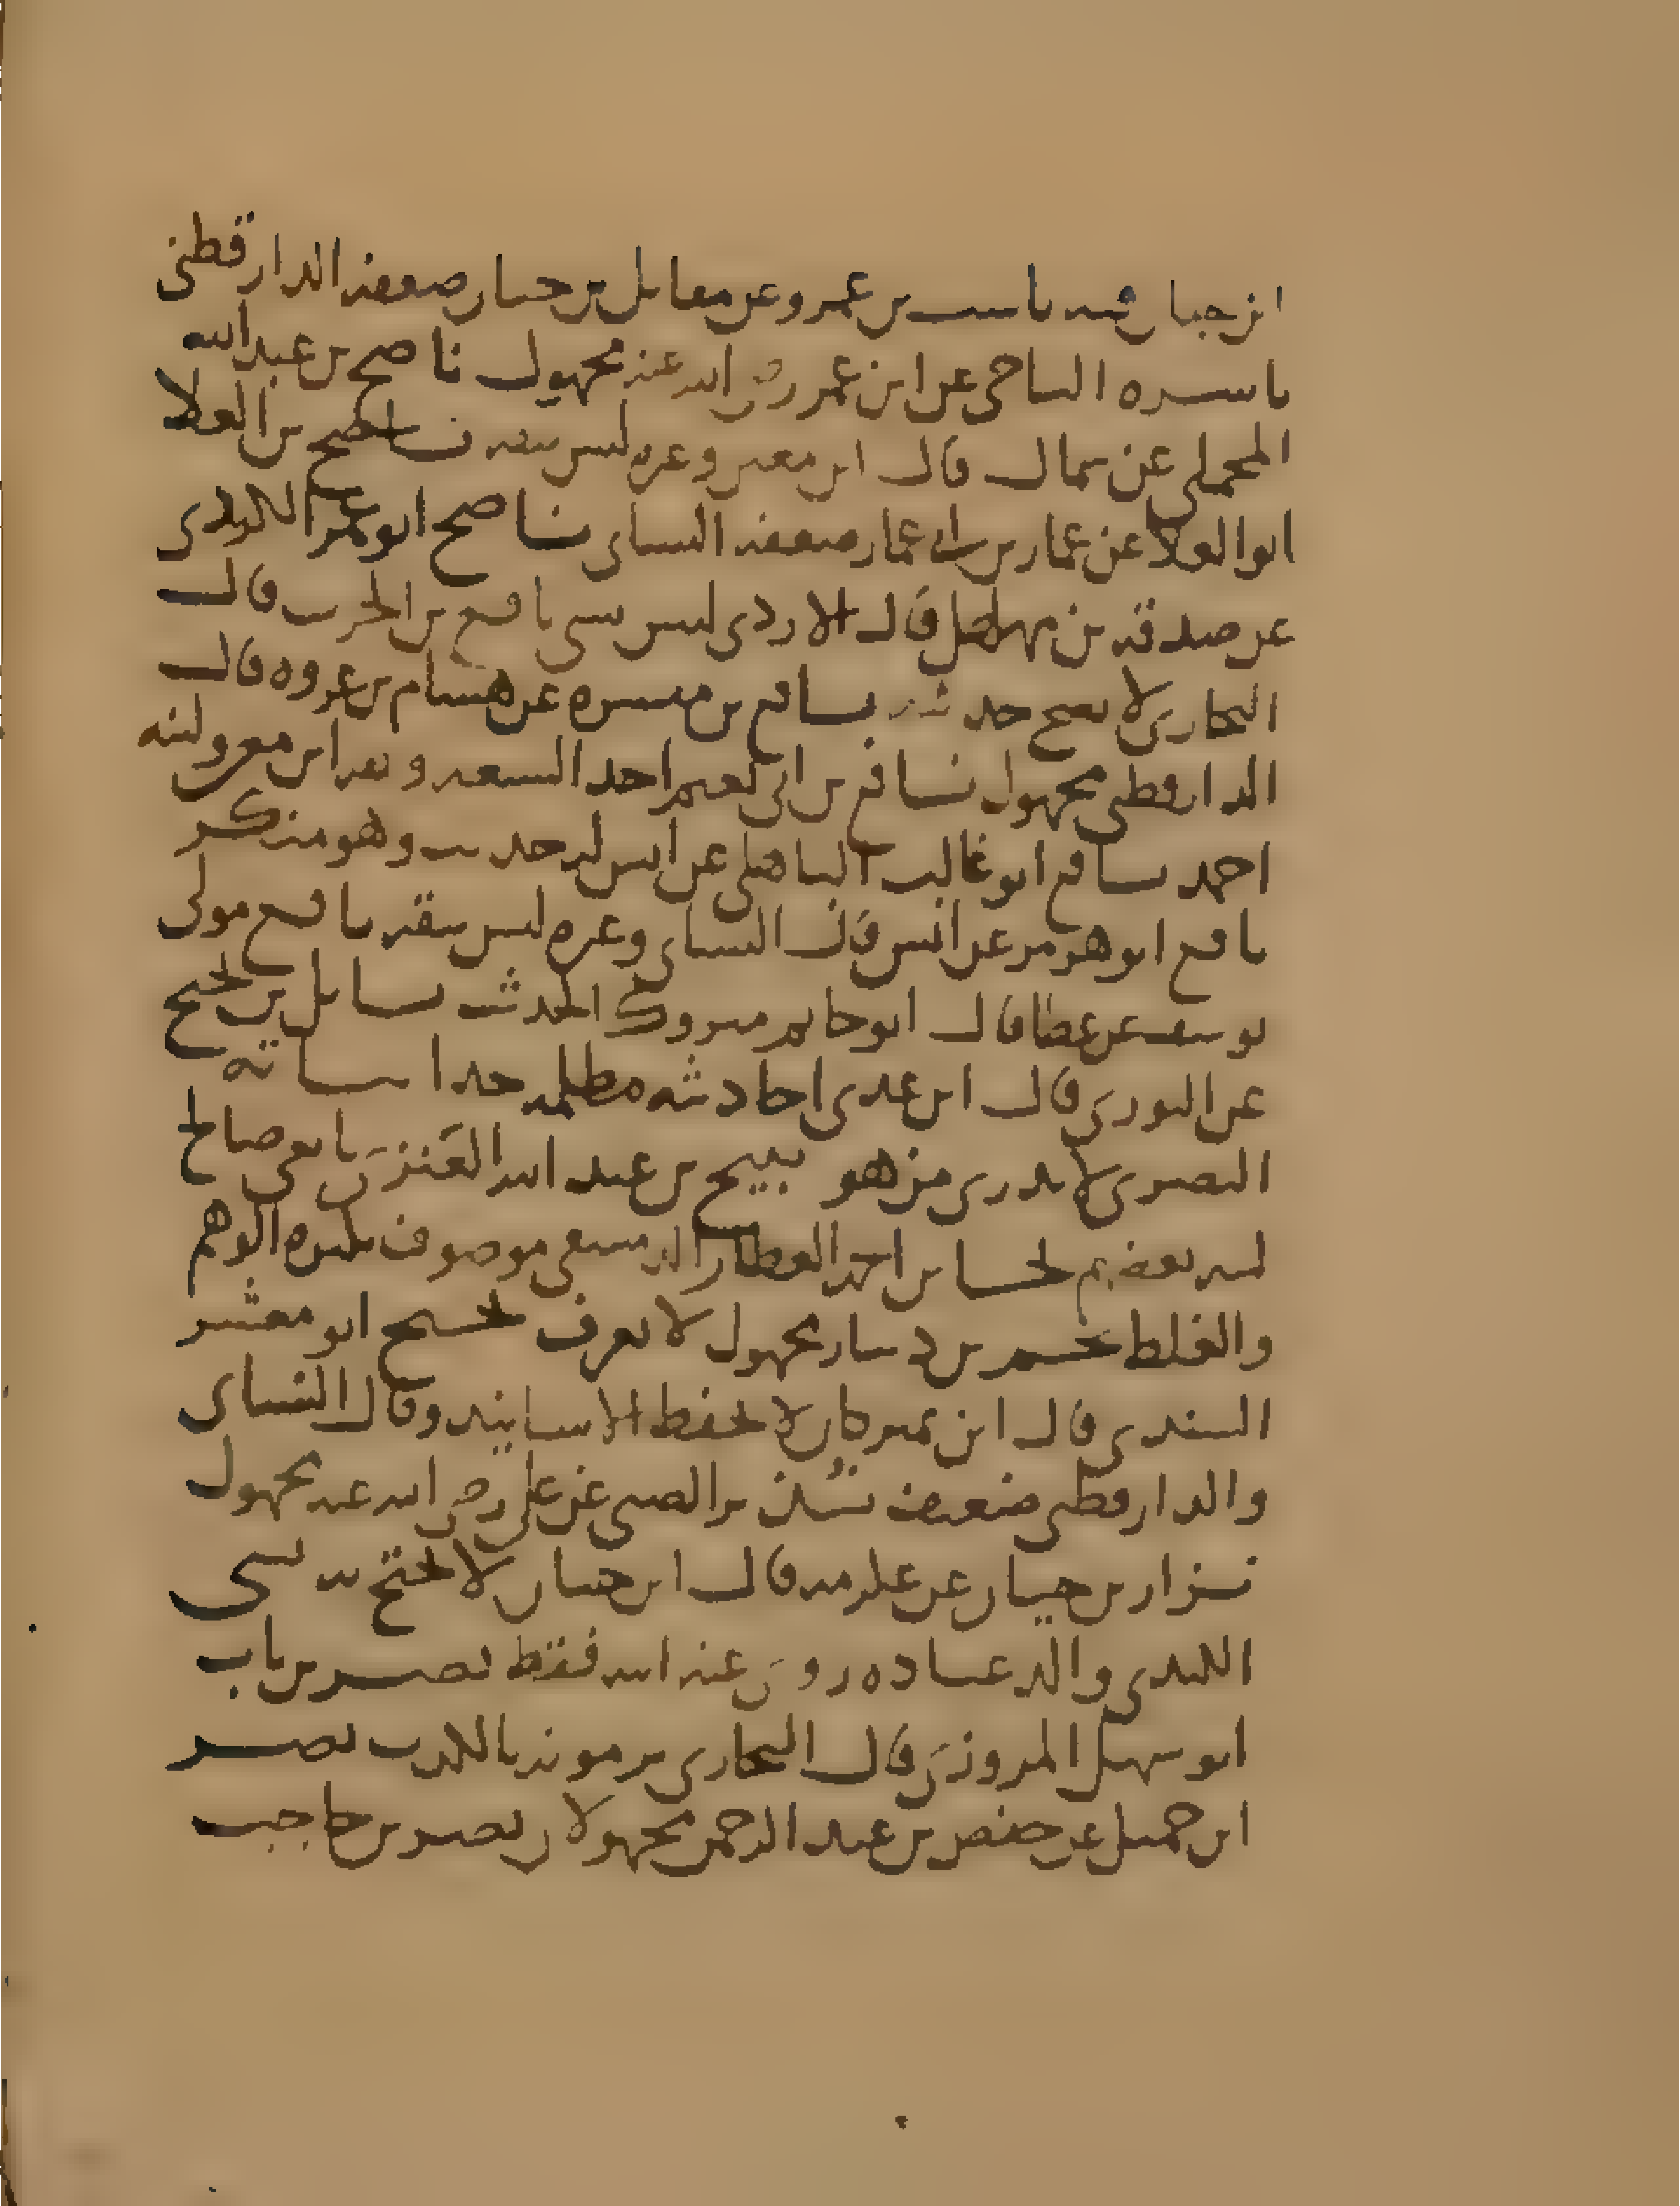 ابن حبان فيه ناشب بن عمرو عن مقاتل بن حيان ضعفه الدارقطني
ناسره الناجي عن ابن عمر رضي الله عنه مجهول ناصح بن عبد الله
المحملي عن سماك قال ابن معين وغيره ليس بثقه ناصح بن العلا
ابو العلا عن عمار بن ابي عمار ضعفه النساي ناصح ابو عمر الكردي
عن صدقه بن مهلهل قال الازدي ليس بشي نافع بن الحرث قال
البخاري لا يصح حديثه نافع بن ميسره عن هشام بن عروه قال
الدارقطني مجهول نافع بن ابي نعيم احد السبعه وثقه ابن معين ولينه
احمد نافع ابو غالب الباهلي عن انس له حديث وهو منكر
نافع ابو هرمز عن انس قال النساي وغيره ليس بثقه نافع مولى
يوسف عن عطا قال ابو حاتم متروك الحديث نايل بن نجيح
عن الثوري قال ابن عدي احاديثه مظلمه جدا نباته
البصري لا يدري من هو نبيح بن عبد الله العنزي تابعي صالح
لينه بعضهم نجا بن احمد العطار الدمشقي موصوف بكثره الوهم
والغلط نجم بن دينار مجهول لا يعرف نجيح ابو معشر
السندي قال ابن نمير كان لا يحفظ الاسانيد وقال النساي
والدارقطني ضعيف نذير الضبي عن علي رضي الله عنه مجهول
نزار بن حيان عن عكرمه قال ابن حبان لا يحتج به نسي
الكندي والد عباده روى عنه ابنه فقط نصر بن باب
ابو سهل المروزي قال البخاري يرمونه بالكذب نصر
ابن جميل عن حفص بن عبد الرحمن مجهولان نصر بن حاجب